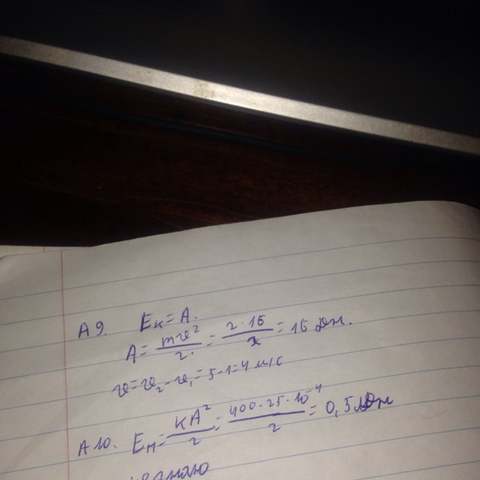 А9. Eк = A.
A = mv²/2 = 2·16/2 = 16 Дж.
v = v₂ - v₁ = 5-1 = 4 м/с
А10. Eп = kA²/2 = 400·25·10⁻⁴/2 = 0,5 Дж